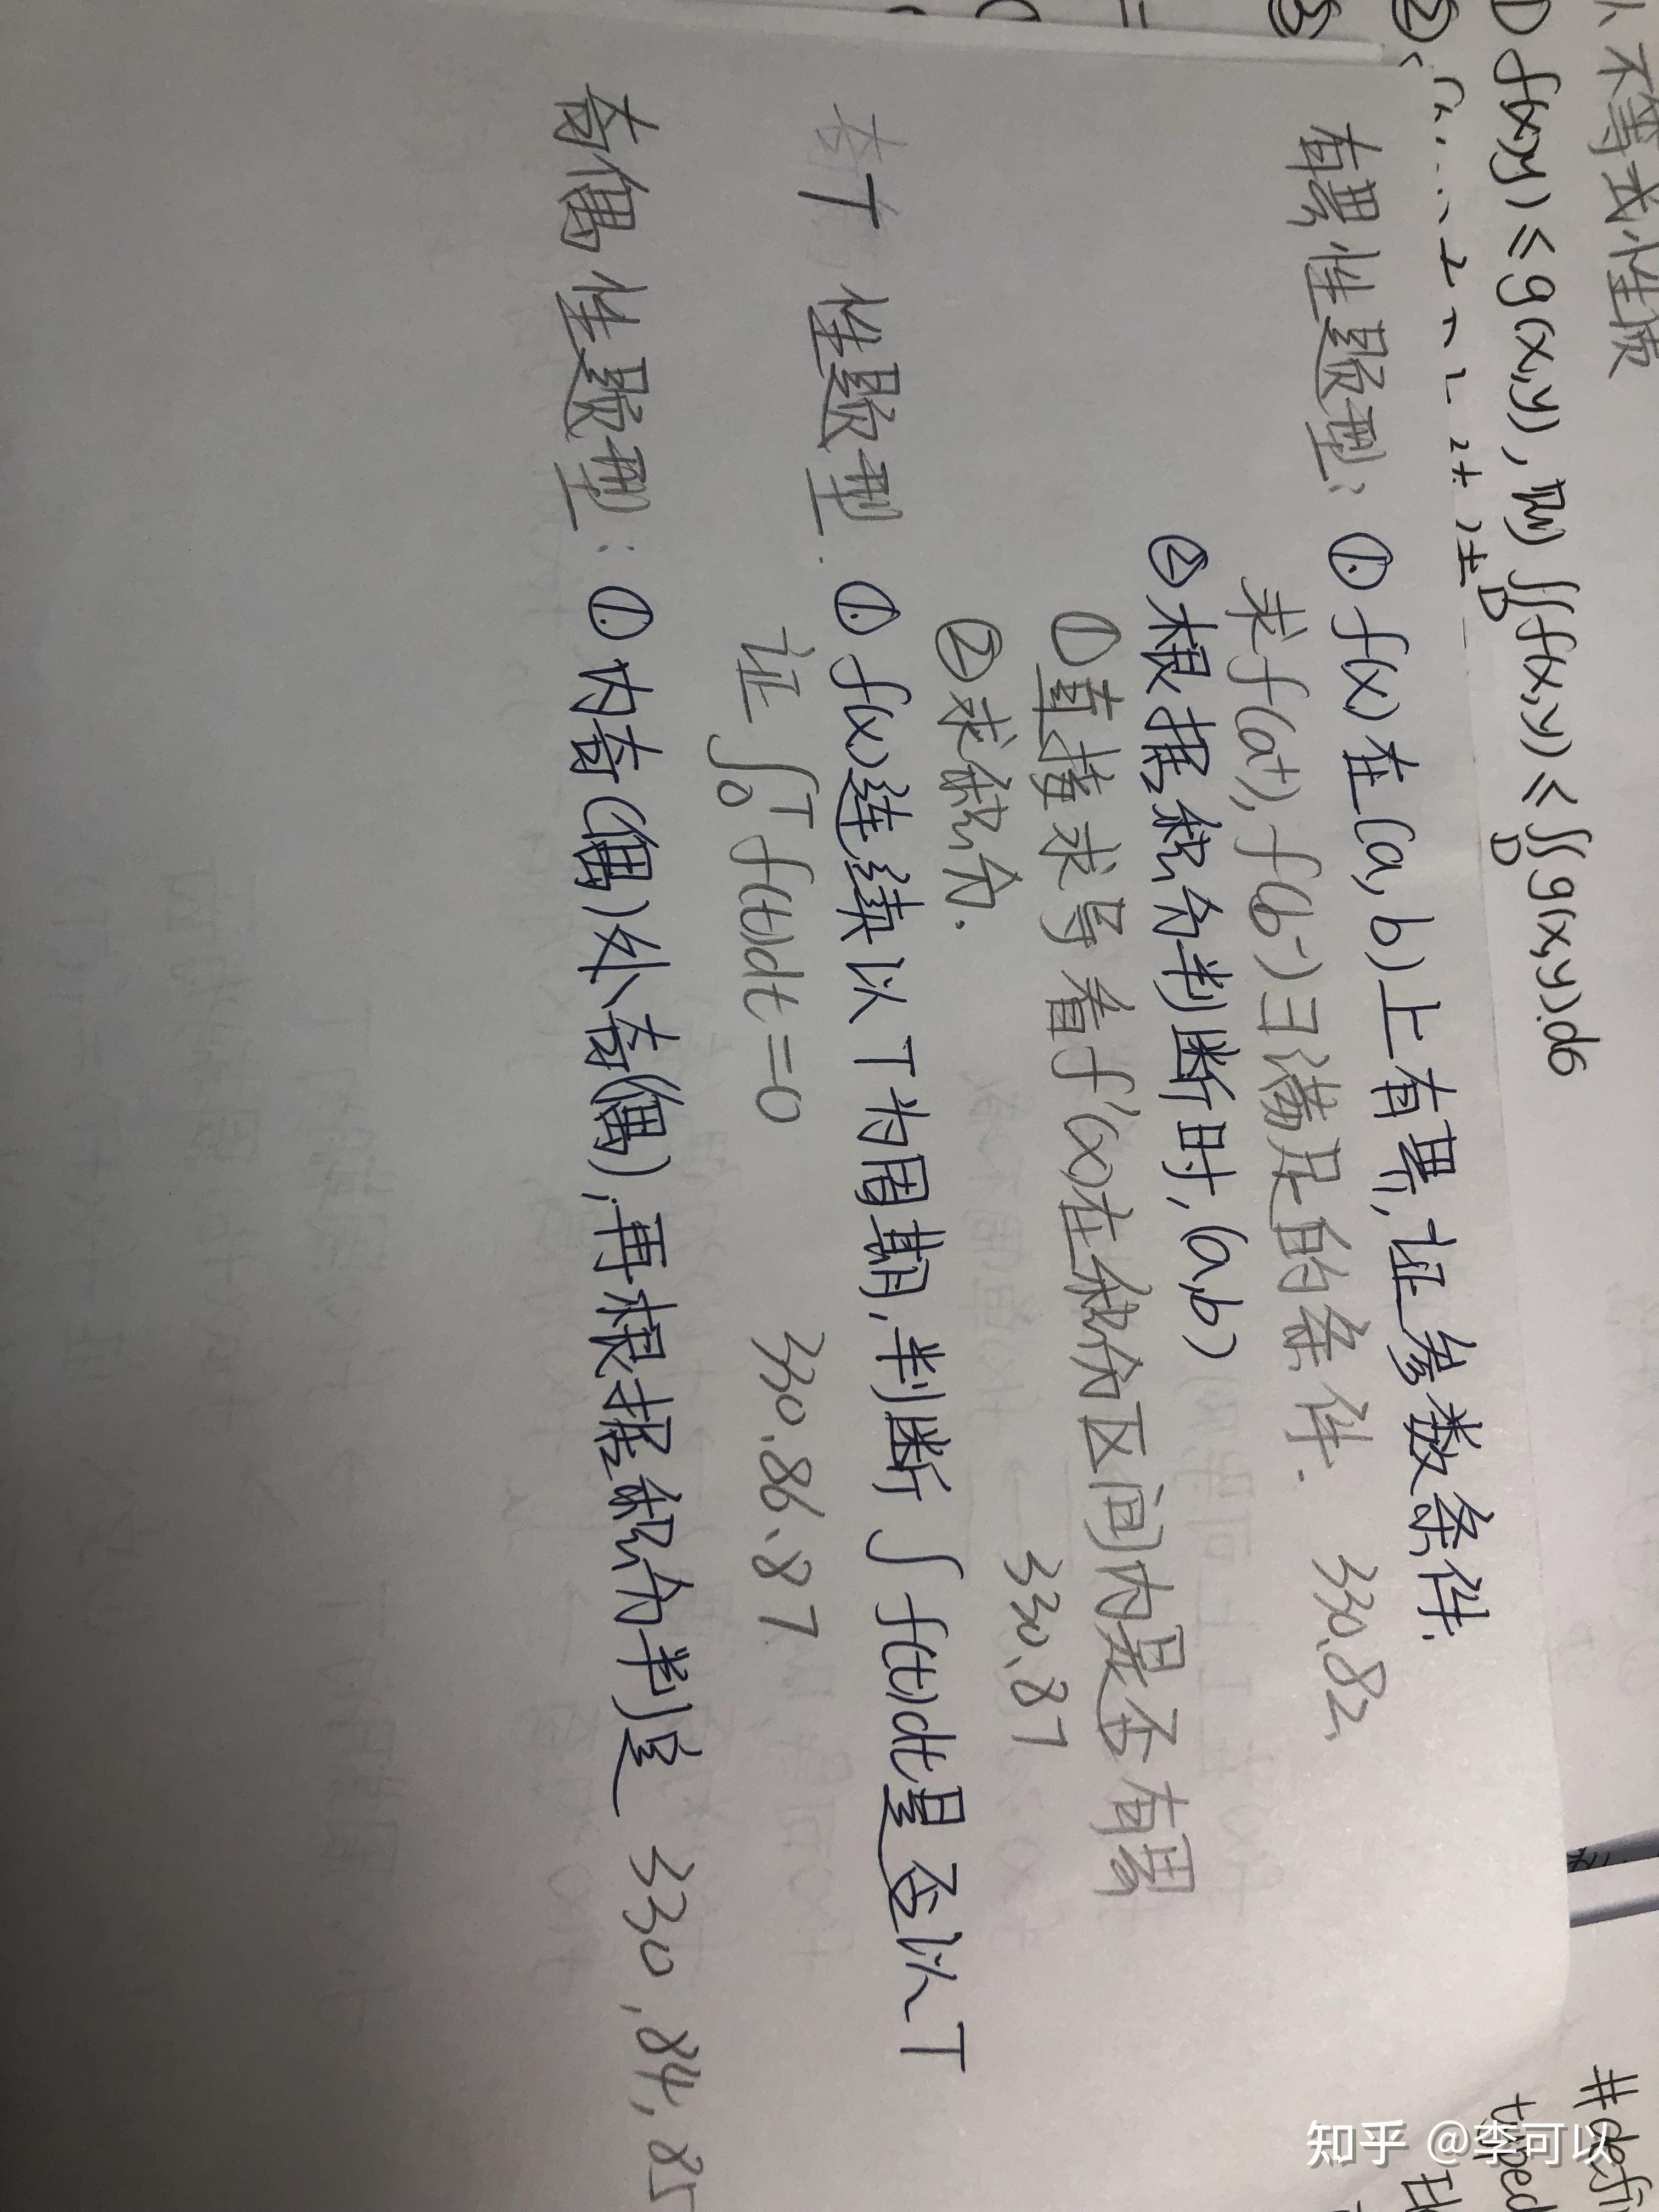 不等式性质
f(x,y)≤g(x,y),则∬f(x,y)≤∬g(x,y)dσ
D D
②
有界性题型: ① f(x)在(a,b)上有界,证参数条件.
求f(a⁺),f(b⁻)∃满足的条件. 330、82、
② 根据积分判断时,(a,b)
①直接求导看f'(x)在积分区间内是否有界
②求积分. 330、87
T性题型. ① f(x)连续以T为周期,判断∫f(t)dt是否以T
证∫₀ᵀf(t)dt=0 330、86、87
奇偶性题型: ① 内奇(偶)外奇(偶),再根据积分判定 330,84,85
#defi
typed
知乎 @李可以